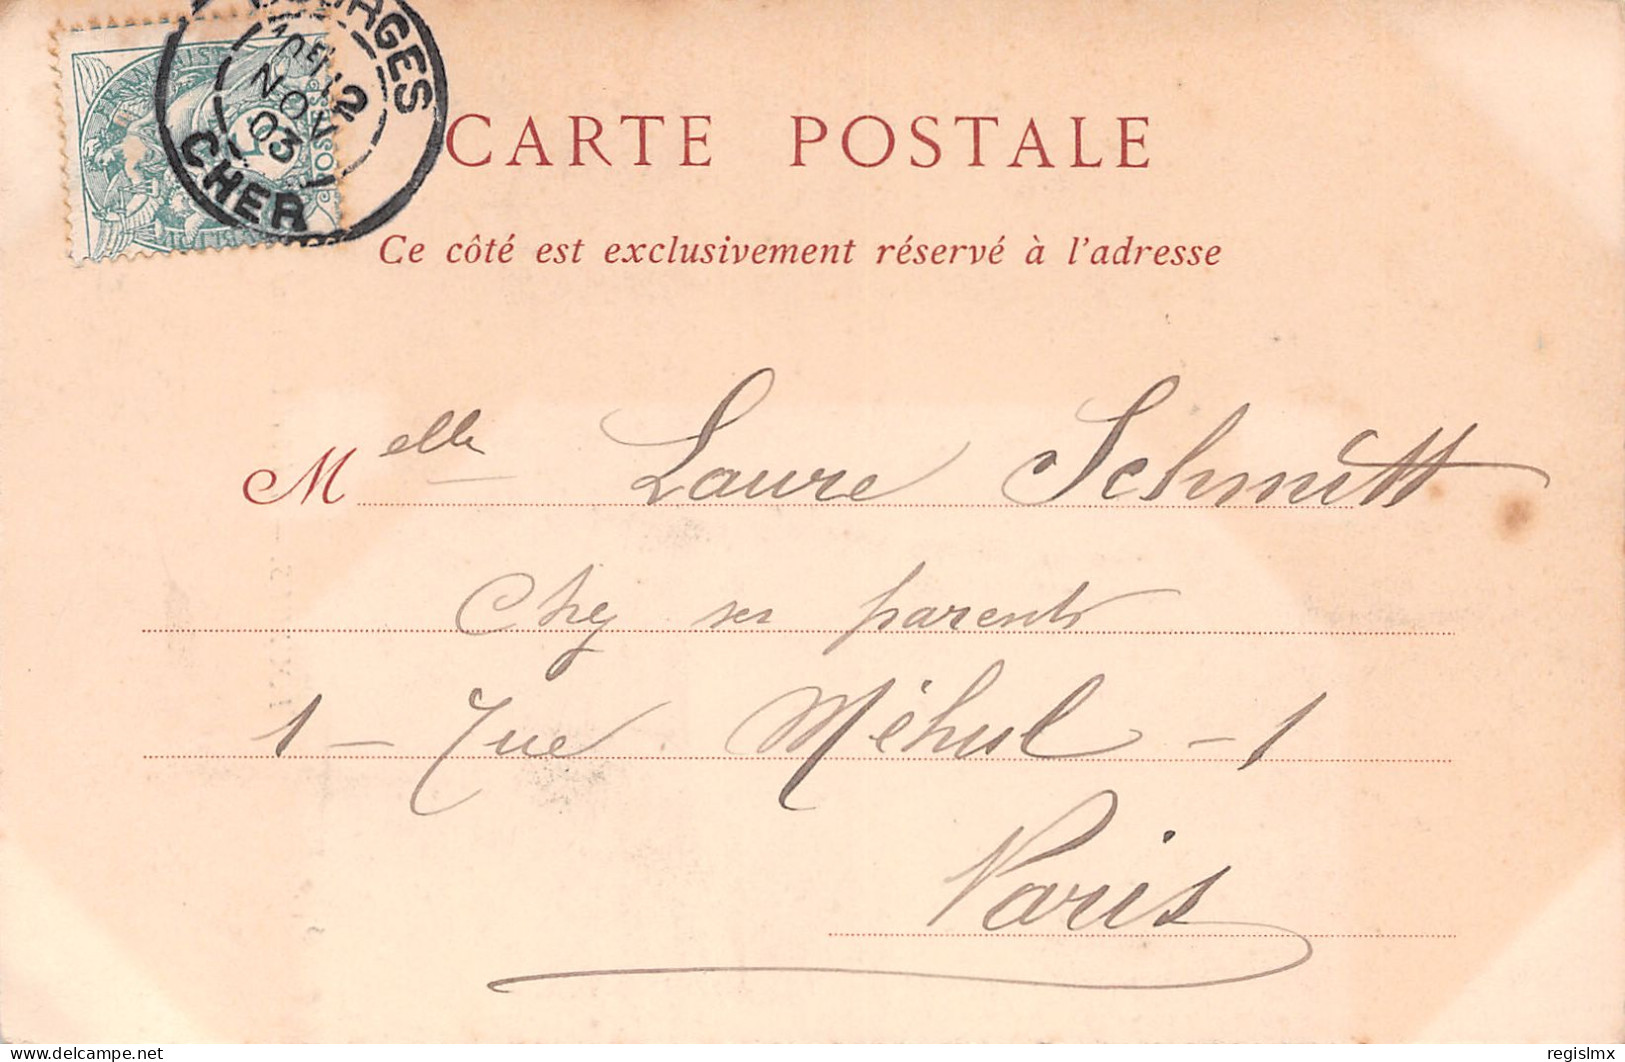 BOURGES
12
NOV
03
CHER
CARTE POSTALE
Ce côté est exclusivement réservé à l'adresse
Melle Laure Schmitt
Chez ses parents
1 - rue Méhul - 1
Paris
delcampe.net
regislmx